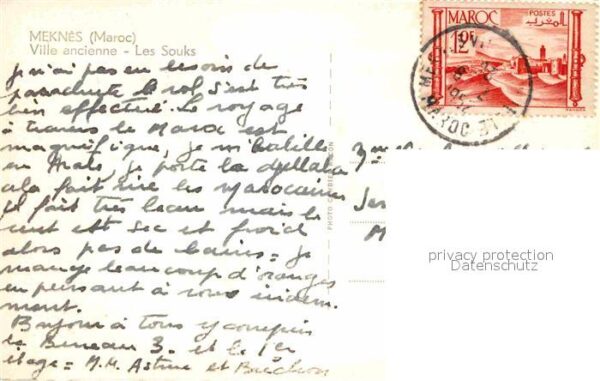 MEKNÈS (Maroc)
Ville ancienne - Les Souks
POSTES
المغرب
MAROC
12F
j'n'ai pas eu besoin de
parachute le vol s'est très
bien effectué. Le voyage
à travers le Maroc est
magnifique, je m'habille
en Arabe, je porte la djellaba
cela fait rire les marocains
il fait très beau mais le
vent est sec et froid
alors pas de bains = je
mange beaucoup d'oranges
en pensant à vous
Bonjour à tous y compris
le Bureau 3. et le 1er
étage = M.M. et
3
privacy protection
Datenschutz